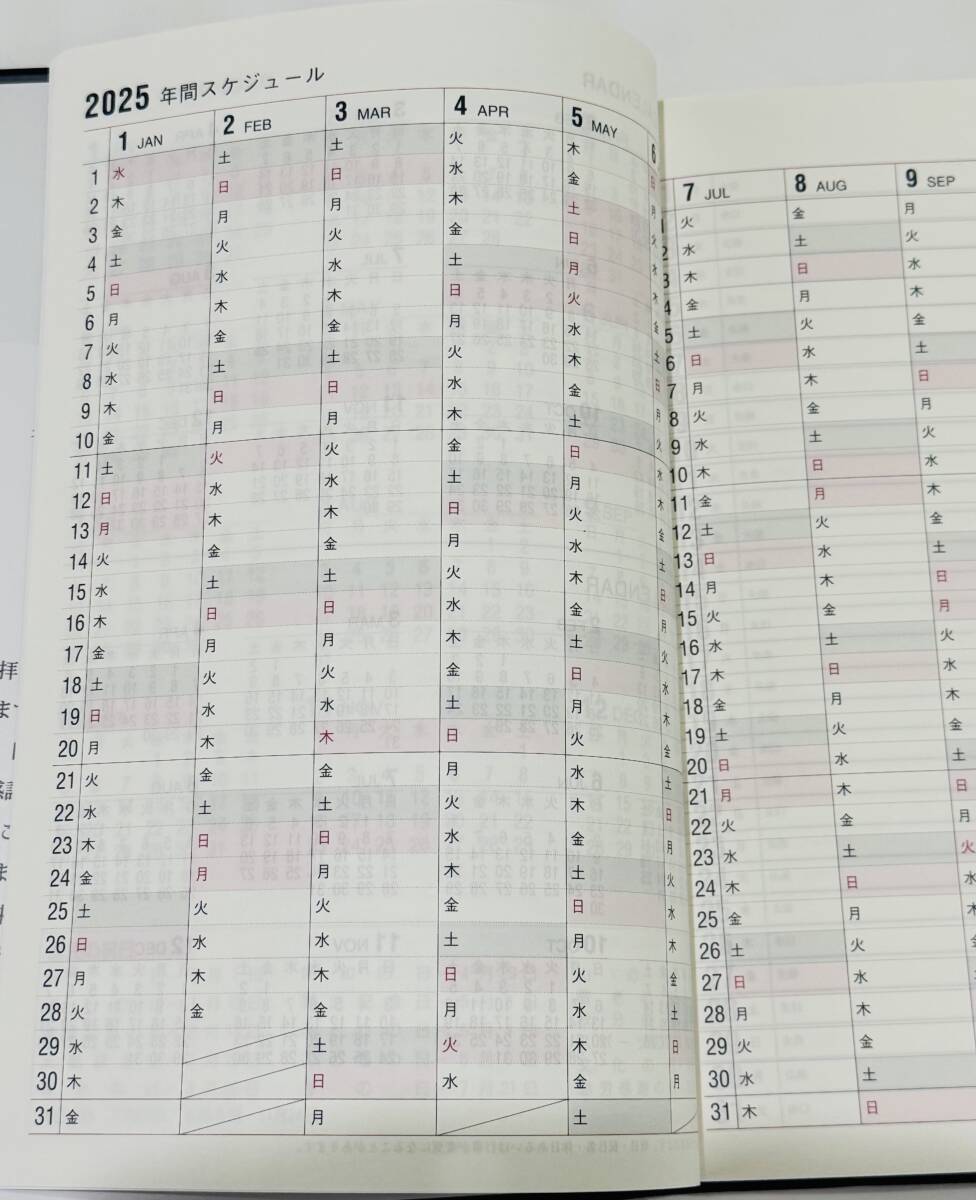 2025 年間スケジュール
1 JAN 2 FEB 3 MAR 4 APR 5 MAY 6
1 水 土 土 火 木 日
2 木 日 日 水 金 月
3 金 月 月 木 土 火
4 土 火 火 金 日 水
5 日 水 水 土 月 木
6 月 木 木 日 火 金
7 火 金 金 月 水 土
8 水 土 土 火 木 日
9 木 日 日 水 金 月
10 金 月 月 木 土 火
11 土 火 火 金 日 水
12 日 水 水 土 月 木
13 月 木 木 日 火 金
14 火 金 金 月 水 土
15 水 土 土 火 木 日
16 木 日 日 水 金 月
17 金 月 月 木 土 火
18 土 火 火 金 日 水
19 日 水 水 土 月 木
20 月 木 木 日 火 金
21 火 金 金 月 水 土
22 水 土 土 火 木 日
23 木 日 日 水 金 月
24 金 月 月 木 土 火
25 土 火 火 金 日 水
26 日 水 水 土 月 木
27 月 木 木 日 火 金
28 火 金 金 月 水 土
29 水 土 火 木 日
30 木 日 水 金 月
31 金 月 土
7 JUL 8 AUG 9 SEP
1 火 金 月
2 水 土 火
3 木 日 水
4 金 月 木
5 土 火 金
6 日 水 土
7 月 木 日
8 火 金 月
9 水 土 火
10 木 日 水
11 金 月 木
12 土 火 金
13 日 水 土
14 月 木 日
15 火 金 月
16 水 土 火
17 木 日 水
18 金 月 木
19 土 火 金
20 日 水 土
21 月 木 日
22 火 金 月
23 水 土 火
24 木 日
25 金 月
26 土 火
27 日 水
28 月 木
29 火 金
30 水 土
31 木 日
拝